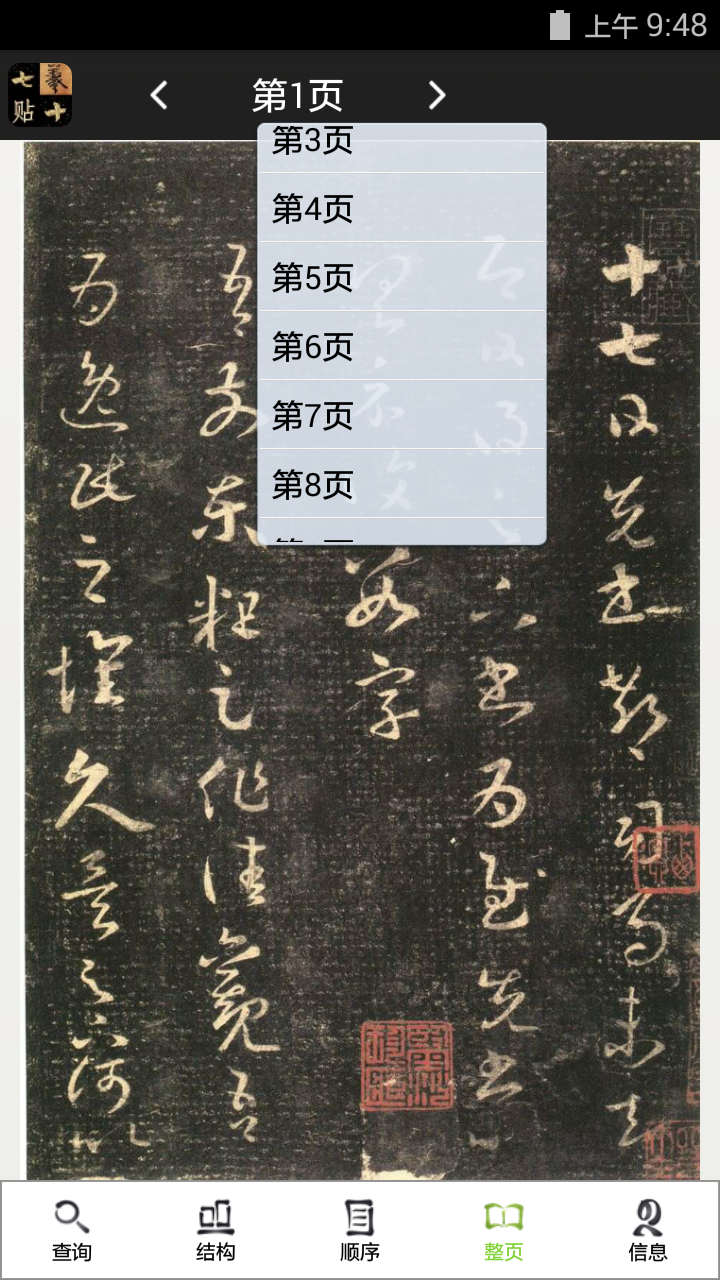 上午 9:48
七羲
贴十
第1页
第3页
第4页
第5页
第6页
第7页
第8页
十七日先書郗司馬未去
即日得足下書為慰先書以
具示復數字
吾前東粗足作佳觀吾
為逸民之懷久矣足下何以
查询
结构
顺序
整页
信息